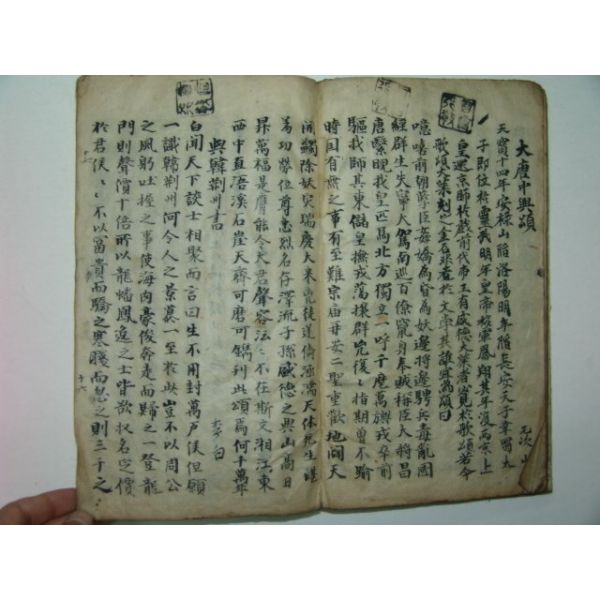 大唐中興頌 元次山
天寶十四年安祿山陷洛陽明年陷長安天子幸蜀太
子即位於靈武明年皇帝移軍鳳翔其年復兩京上
皇還京師於戲前代帝王有盛德大業者必見於歌頌若今
歌頌大業刻之金石非老於文學其誰宜爲頌曰
噫嘻前朝孽臣姦嬌為昏為妖邊將騁兵毒亂國
經群生失寧大駕南巡百僚竄身奉賊稱臣大將昌
唐繄睨我皇匹馬北方獨立一呼千麾萬旟戎卒前
驅我師其東儲皇撫戎蕩攘群兇復〻指期曾不踰
時国有無之事有至難宗庙再安二聖重歡地闢天
開蠲除妖灾瑞慶大来兇徒逆儔涵濡天休死生堪
羞功勞位尊忠烈名存澤流子孫盛德之興山高日
昇萬福是膺能令大君聲容沄〻不在斯文湘江東
西中直浯溪石崖天齊可磨可鐫刊此頌焉何千萬年
與韓荊州書 李太白
白聞天下談士相聚而言曰生不用封萬戶侯但願
一識韓荊州何令人之景慕一至於此豈不以周公
之風躬吐握之事使海內豪俊奔走而歸之一登龍
門則聲價十倍所以龍蟠鳳逸之士皆欲收名定價
於君侯〻〻不以富貴而驕之寒賤而忽之則三千之
十六